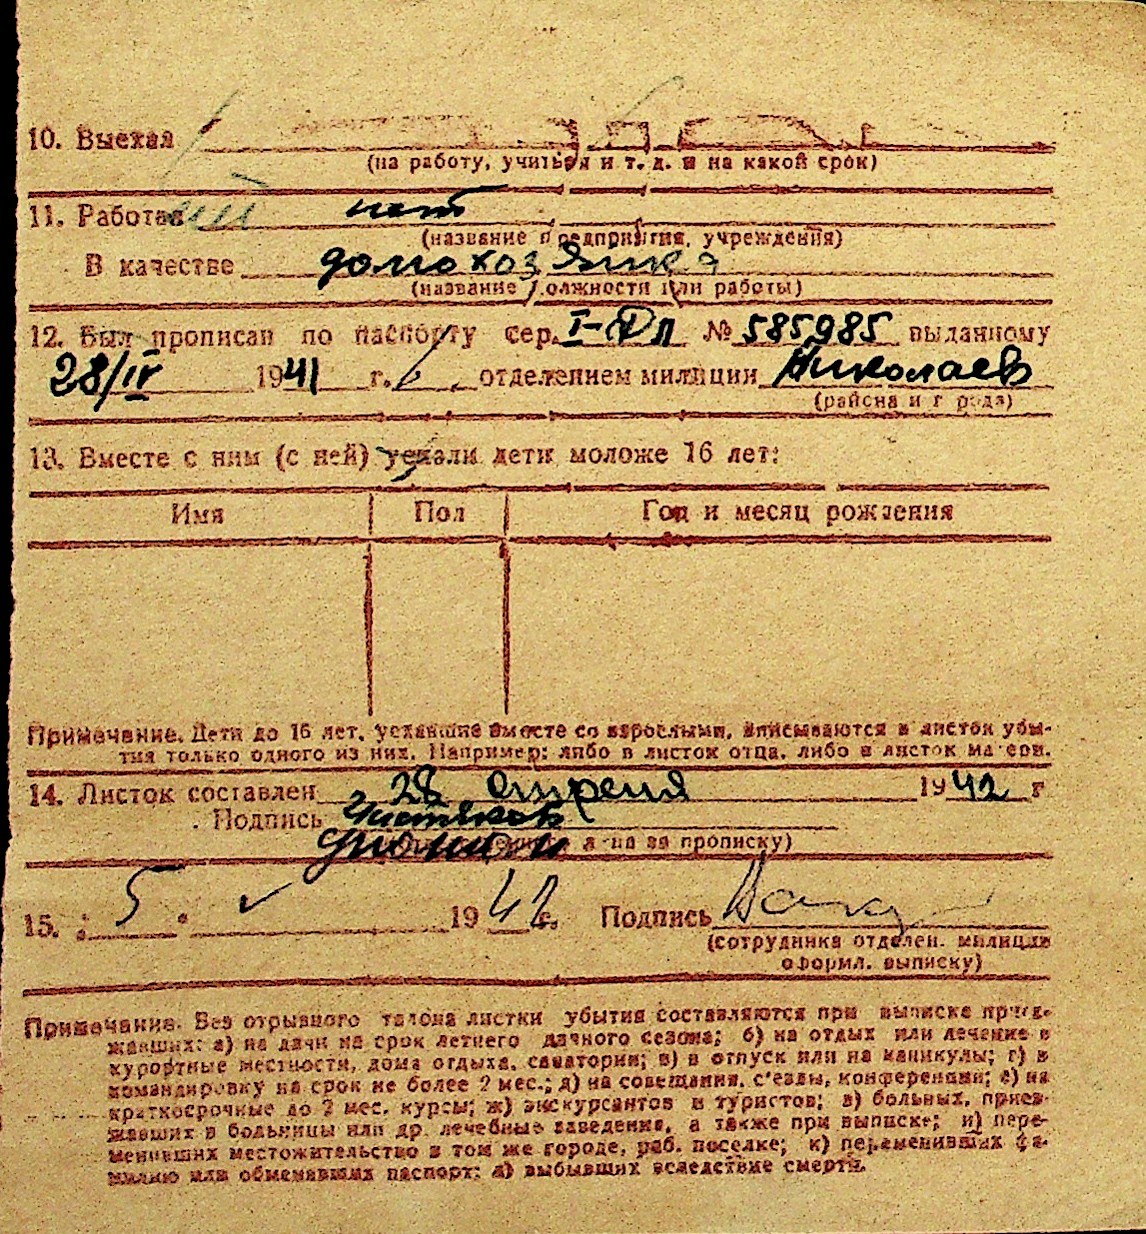 10. Выехал
(на работу, учиться и т. д. и на какой срок)
11. Работал нет
(название предприятия, учреждения)
В качестве домохозяйка
(название должности или работы)
12. Был прописан по паспорту сер. I-ФЛ № 585985 выданному
28/IV 1941 г. отделением милиции Николаев
(района и города)
13. Вместе с ним (с ней) уехали дети моложе 16 лет:
Имя Пол Год и месяц рождения
Примечание. Дети до 16 лет, уехавшие вместе со взрослыми, вписываются в листок убы-
тия только одного из них. Например: либо в листок отца, либо в листок матери.
14. Листок составлен 28 апреля 1942 г
Подпись
а на за прописку)
15. 5 1942 г. Подпись
(сотрудника отделен. милиции
оформл. выписку)
Примечание. Без отрывного талона листки убытия составляются при выписке приез-
жавших: а) на дачи на срок летнего дачного сезона; б) на отдых или лечение в
курортные местности, дома отдыха, санатории; в) в отпуск или на каникулы; г) в
командировку на срок не более 2 мес.; д) на совещания, с'езды, конференции; е) на
краткосрочные до 2 мес. курсы; ж) экскурсантов и туристов; з) больных, приез-
жавших в больницы или др. лечебные заведения, а также при выписке; и) пере-
менивших местожительство в том же городе, раб. поселке; к) переменивших фа-
милию или обменявших паспорт; л) выбывших вследствие смерти.